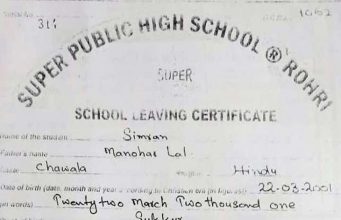 1062
311
SUPER PUBLIC HIGH SCHOOL ® ROHRI
SUPER
SCHOOL LEAVING CERTIFICATE
Name of the student Simran
Father's name Manohar Lal
Chawala Hindu
Date of birth (date, month and year according to Christian era (in figures) 22-03-2001
(in words) Twenty two March Two thousand one
Sukkur